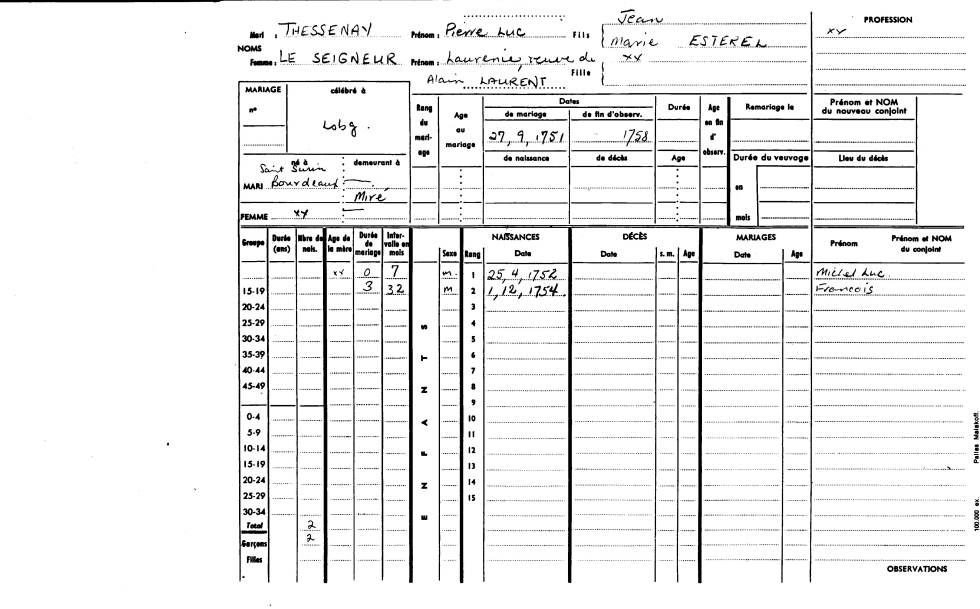 Jean
PROFESSION
Mari : THESSENAY Prénom : Pierre Luc Fils Marie ESTEREL xx
NOMS
Femme : LE SEIGNEUR Prénom : Laurenie, veuve de Fille xx
Alain LAURENT
MARIAGE célébré à
n° Lobg.
Rang du mari-age Age au mariage Dates Durée Age en fin d' observ. Remariage le Prénom et NOM du nouveau conjoint
de mariage de fin d'observ.
27, 9, 1751 1758
de naissance de décès Age Durée du veuvage Lieu du décès
né à demeurant à
Saint Surin
MARI Bourdeaux — en
Miré
FEMME xx — mois
Groupe Durée (ans) Nbre de nais. Age de la mère Durée de mariage Inter-valle en mois Sexe Rang NAISSANCES Date DÉCÈS Date s. m. Age MARIAGES Date Age Prénom Prénom et NOM du conjoint
xx 0 7 m. 1 25, 4, 1752 Michel Luc
15-19 3 32 m 2 1, 12, 1754 Francois
20-24 3
25-29 S 4
30-34 5
35-39 T 6
40-44 7
45-49 N 8
9
0-4 A 10
5-9 11
10-14 F 12
15-19 13
20-24 N 14
25-29 15
30-34 E
Total 2
Garçons 2
Filles
OBSERVATIONS
100.000 ex. Pallas Malakoff.